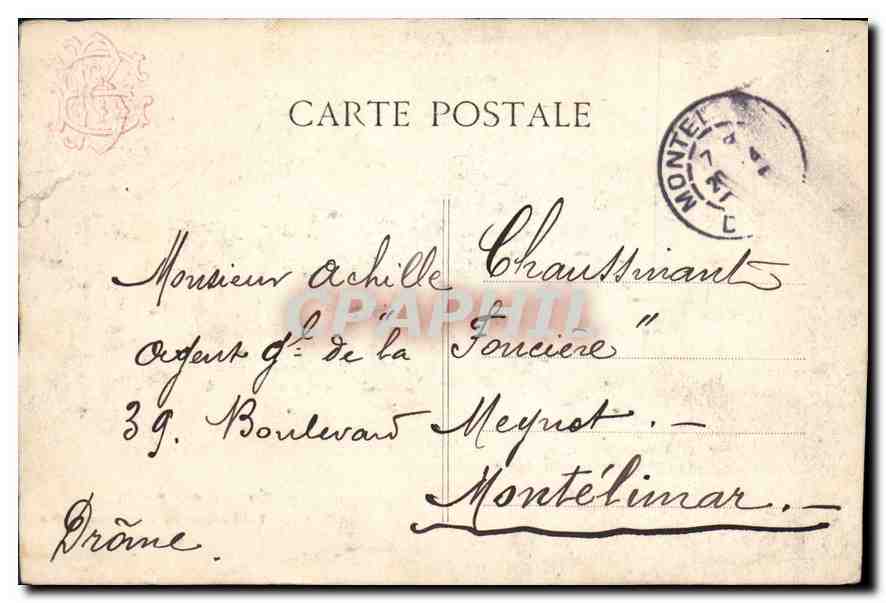 CARTE POSTALE
MONTEL
Monsieur Achille Chaussinant
agent gl. de "la Foncière"
39. Boulevard Meynot. —
Montélimar. —
Drôme.
CPAPHIL